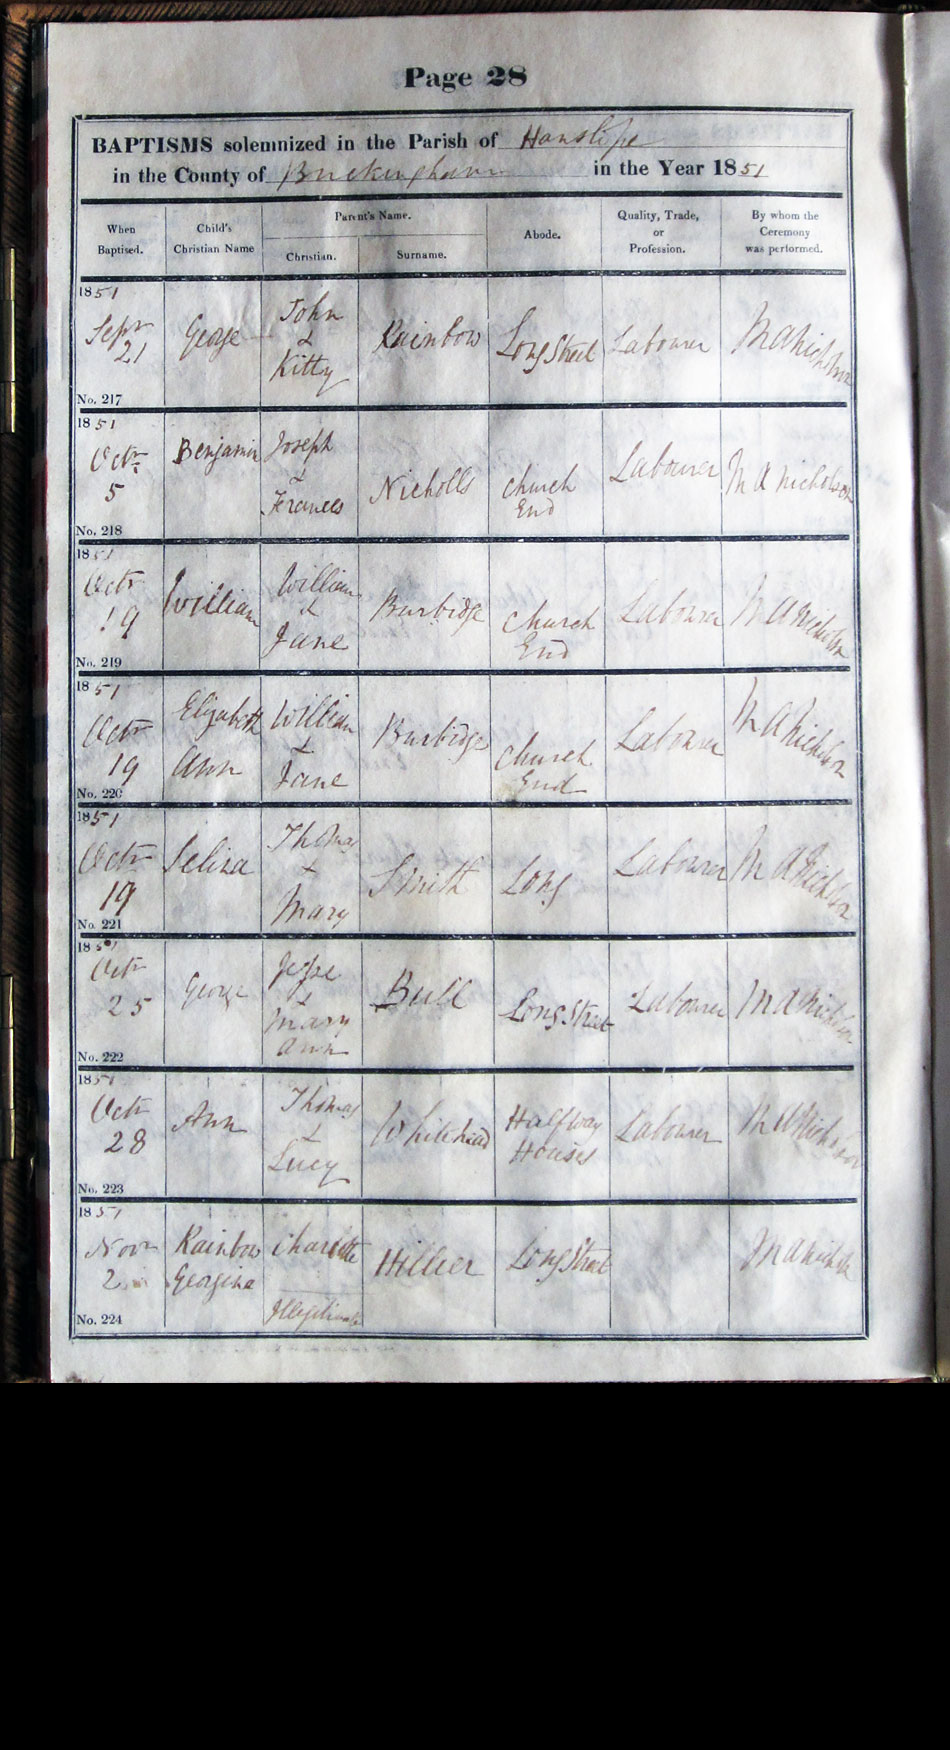 Page 28
BAPTISMS solemnized in the Parish of Hanslope
in the County of Buckingham in the Year 1851
When Baptised. Child's Christian Name Parent's Name. Christian. Surname. Abode. Quality, Trade, or Profession. By whom the Ceremony was performed.
1851
Septr 21 George John & Kitty Rainbow Long Street Labourer M A Nicholson
No. 217
1851
Octr 5 Benjamin Joseph & Frances Nicholls Church End Labourer M A Nicholson
No. 218
1851
Octr 19 William William & Jane Burbidge Church End Labourer M A Nicholson
No. 219
1851
Octr 19 Elizabeth Ann William & Jane Burbidge Church End Labourer M A Nicholson
No. 220
1851
Octr 19 Selina Thomas & Mary Smith Long Labourer M A Nicholson
No. 221
1851
Octr 25 George Jesse & Mary Ann Bull Long Street Labourer M A Nicholson
No. 222
1851
Octr 28 Ann Thomas & Lucy Whitehead Halfway Houses Labourer M A Nicholson
No. 223
1851
Novr 2 Rainbow Georgina Charlotte Illegitimate Hillier Long Street M A Nicholson
No. 224